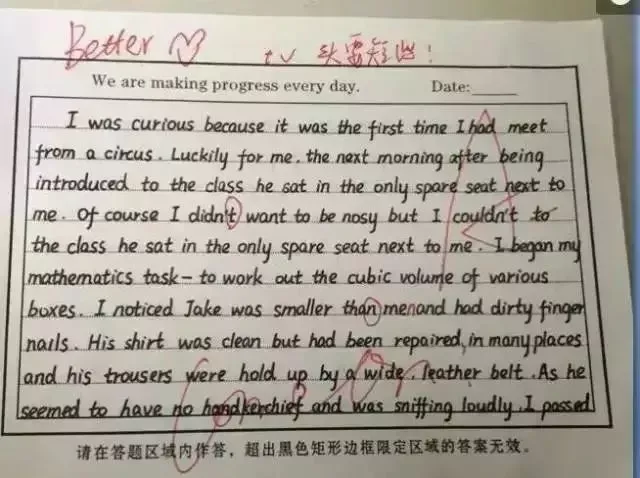 Better
t v 头要短些!
We are making progress every day. Date:
I was curious because it was the first time I had meet
from a circus. Luckily for me. the next morning after being
introduced to the class he sat in the only spare seat next to
me. Of course I didn't want to be nosy but I couldn't to
the class he sat in the only spare seat next to me. I began my
mathematics task - to work out the cubic volume of various
boxes. I noticed Jake was smaller than menand had dirty finger
nails. His shirt was clean but had been repaired, in many places
and his trousers were hold up by a wide. leather belt. As he
seemed to have no handkerchief and was sniffing loudly. I passed
请在答题区域内作答，超出黑色矩形边框限定区域的答案无效。